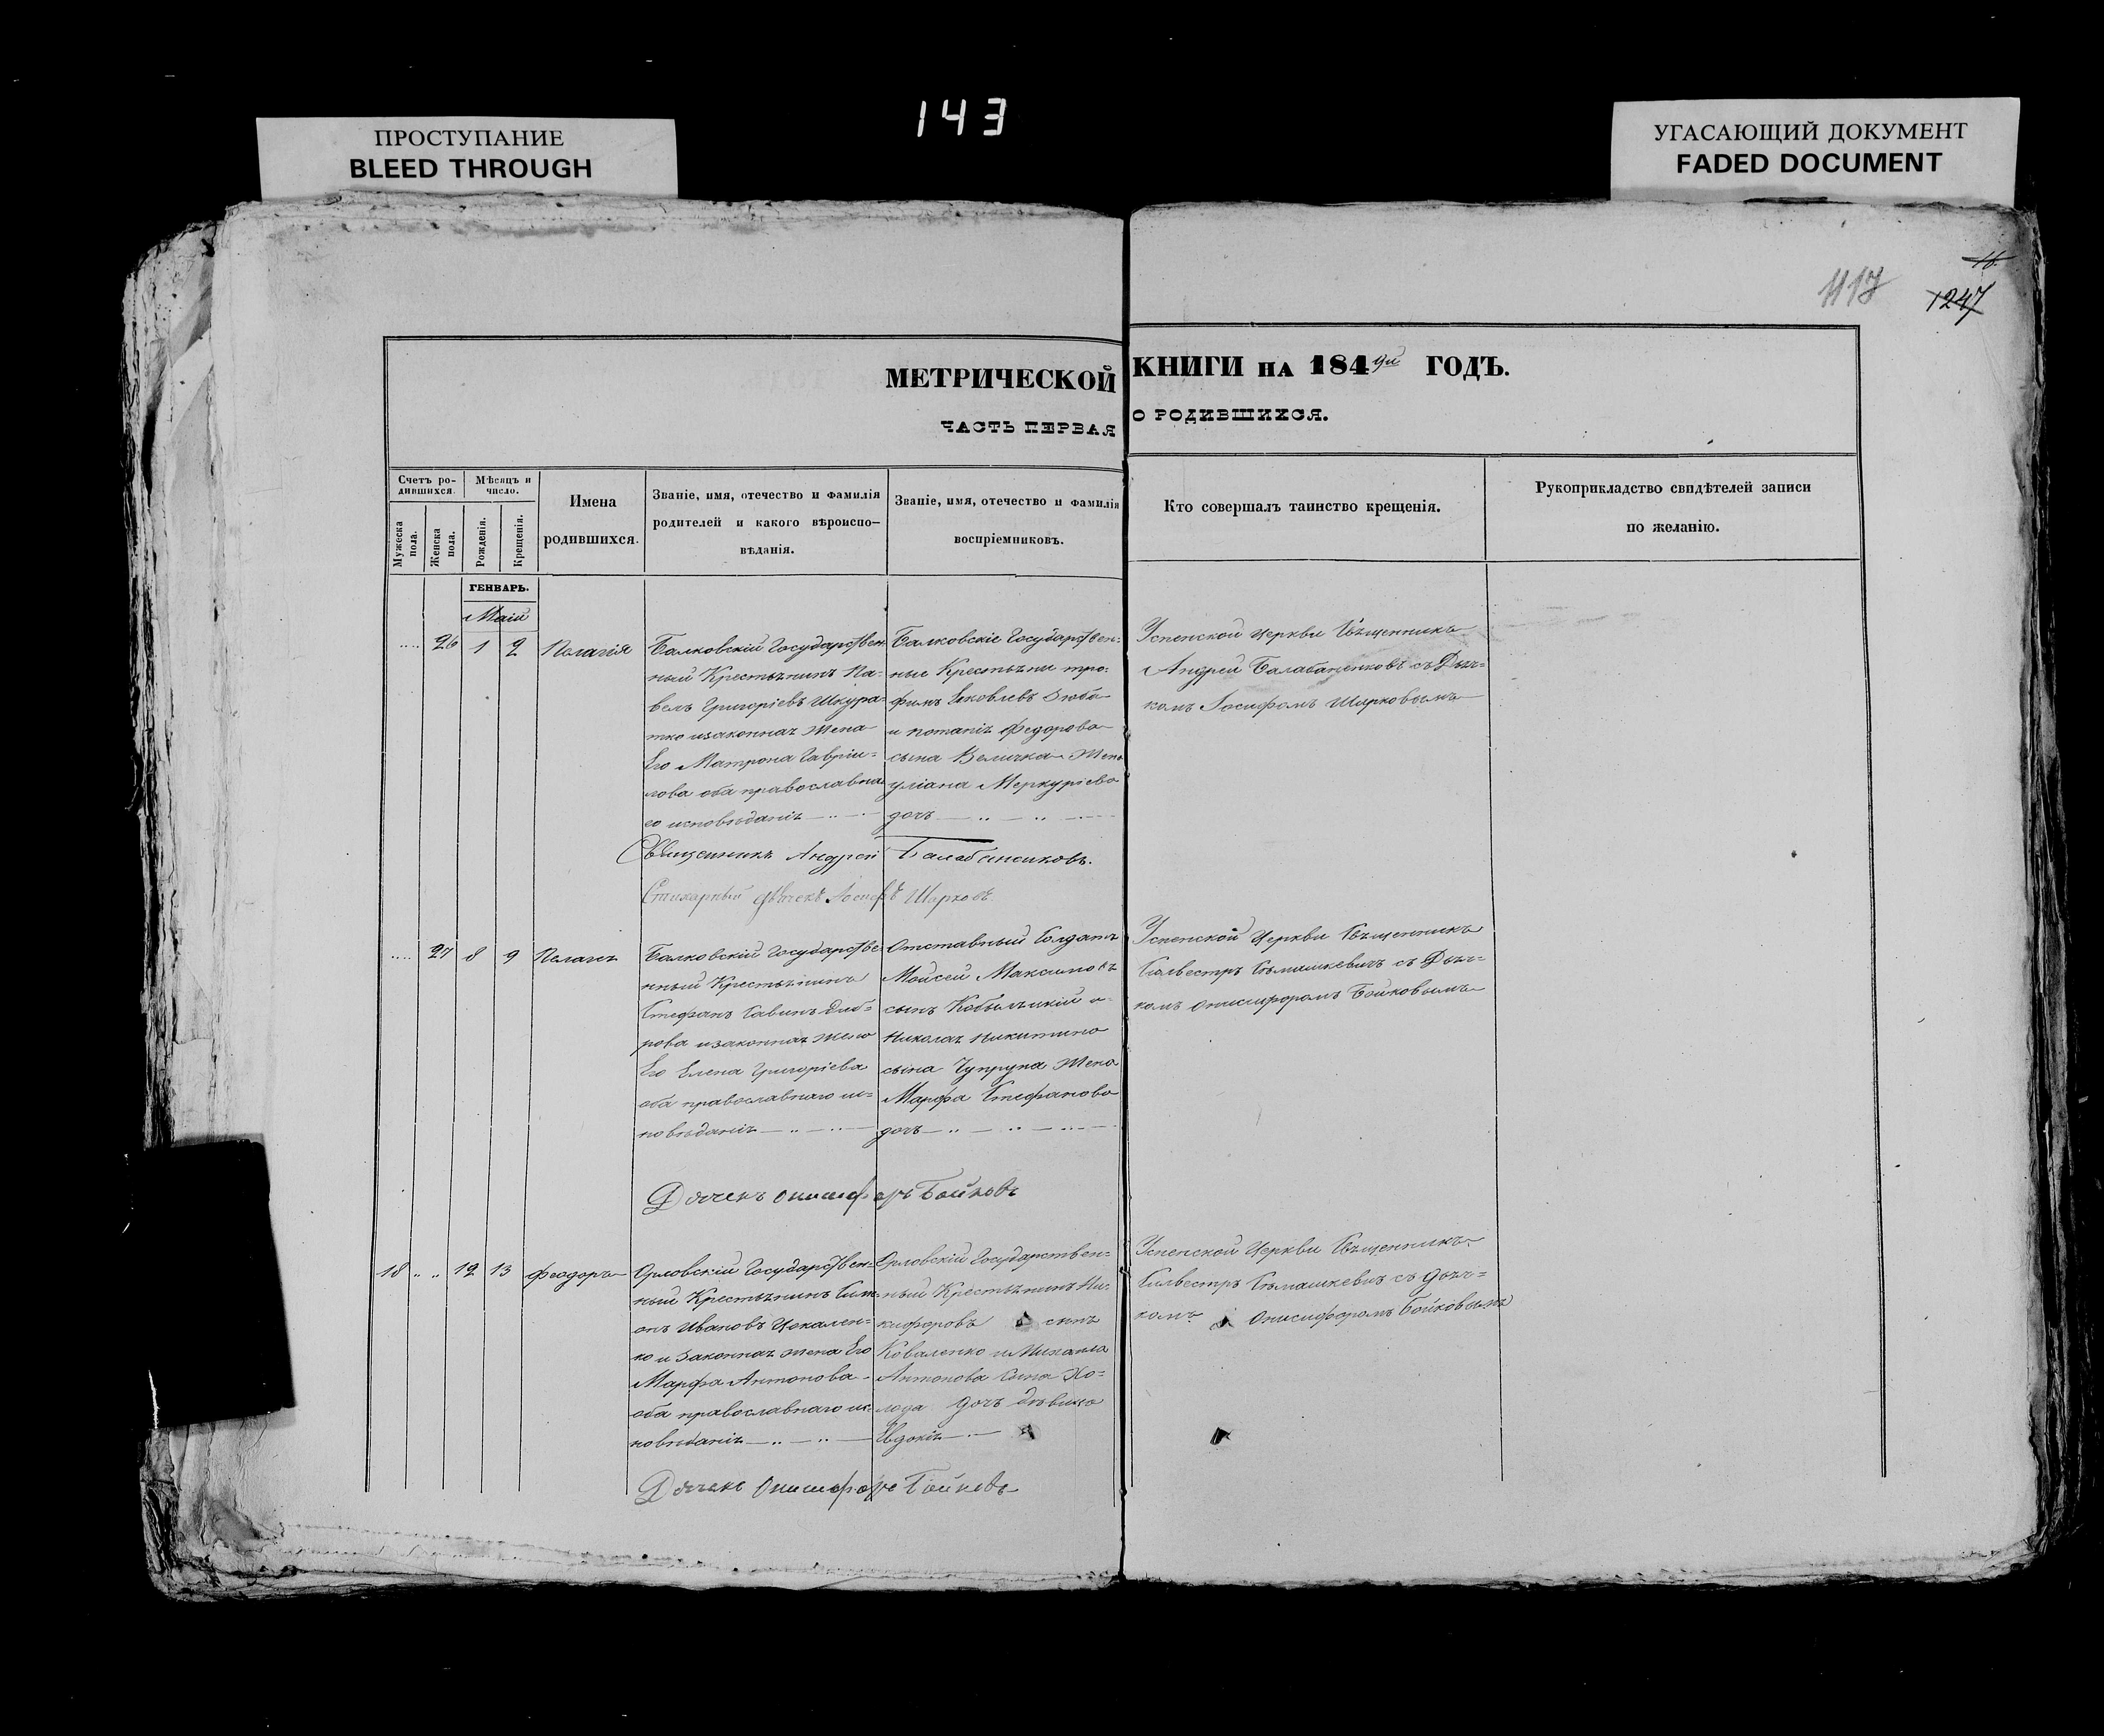 143
ПРОСТУПАНИЕ
BLEED THROUGH
УГАСАЮЩИЙ ДОКУМЕНТ
FADED DOCUMENT
16
1247
МЕТРИЧЕСКОЙ КНИГИ НА 1849й ГОДЪ.
ЧАСТЬ ПЕРВАЯ О РОДИВШИХСЯ.
Счетъ ро-
дившихся.
Мужеска пола.
Женска пола.
Мѣсяцъ и
число.
Рожденія.
Крещенія.
Имена
родившихся.
Званіе, имя, отечество и фамилія
родителей и какого вѣроиспо-
вѣданія.
Званіе, имя, отечество и фамилія
воспріемниковъ.
Кто совершалъ таинство крещенія.
Рукоприкладство свидѣтелей записи
по желанію.
ГЕНВАРЬ.
Маій
26 1 2 Пелагія
Балковскій Государствен
ный Крестьянинъ Па-
велъ Григоріевъ Шкура-
тко изаконная Жена
Его Матрона Гаврии-
лова оба православна
го исповѣданія
Балковскіе Государствен-
ные Крестьяни тро-
фимъ Яковлевъ Зюба
и потапія Федорова
сына Величка Жена
уліана Меркуріева
дочъ
Успенской церкви Священникъ
Андрей Балабаненковъ съ Дьяч-
комъ Іосифомъ Шарковымъ
Священникъ Андрей Балабаненковъ.
Стихарный дьячекъ Іосифъ Шарковъ.
27 8 9 Пелагія
Балковскій Государстве
нный Крестьянинъ
Стефанъ Савинъ
изаконная жена
Его Елена Григоріева
оба православнаго ис-
повѣданія
Отставный Солдатъ
Мойсей Максимовъ
сынъ Кобыляцкій и
Николая Никитина
сына Чупруна Жена
Марфа Стефанова
дочъ
Успенской Церкви Священникъ
Силвестръ Сѣмашкевичъ съ Дьяч-
комъ Онисифоромъ Бойковымъ
Дячекъ Онисифоръ Бойковъ
18 12 13 Феодоръ
Орловскій Государствен-
ный Крестьянинъ Сим-
онъ Ивановъ Цокален-
ко и Законная жена Его
Марфа Антонова
оба православнаго ис-
повѣданія
Орловскій Государствен-
ный Крестьянинъ Ни-
кифоровъ сынъ
Коваленко и Михаила
Антонова Сына Хо-
лода дочъ дѣвица
Евдокія
Успенской Церкви Священникъ
Силвестръ Сѣмашкевичъ съ дьяч-
комъ Онисифоромъ Бойковымъ
Дячекъ Онисифоръ Бойковъ